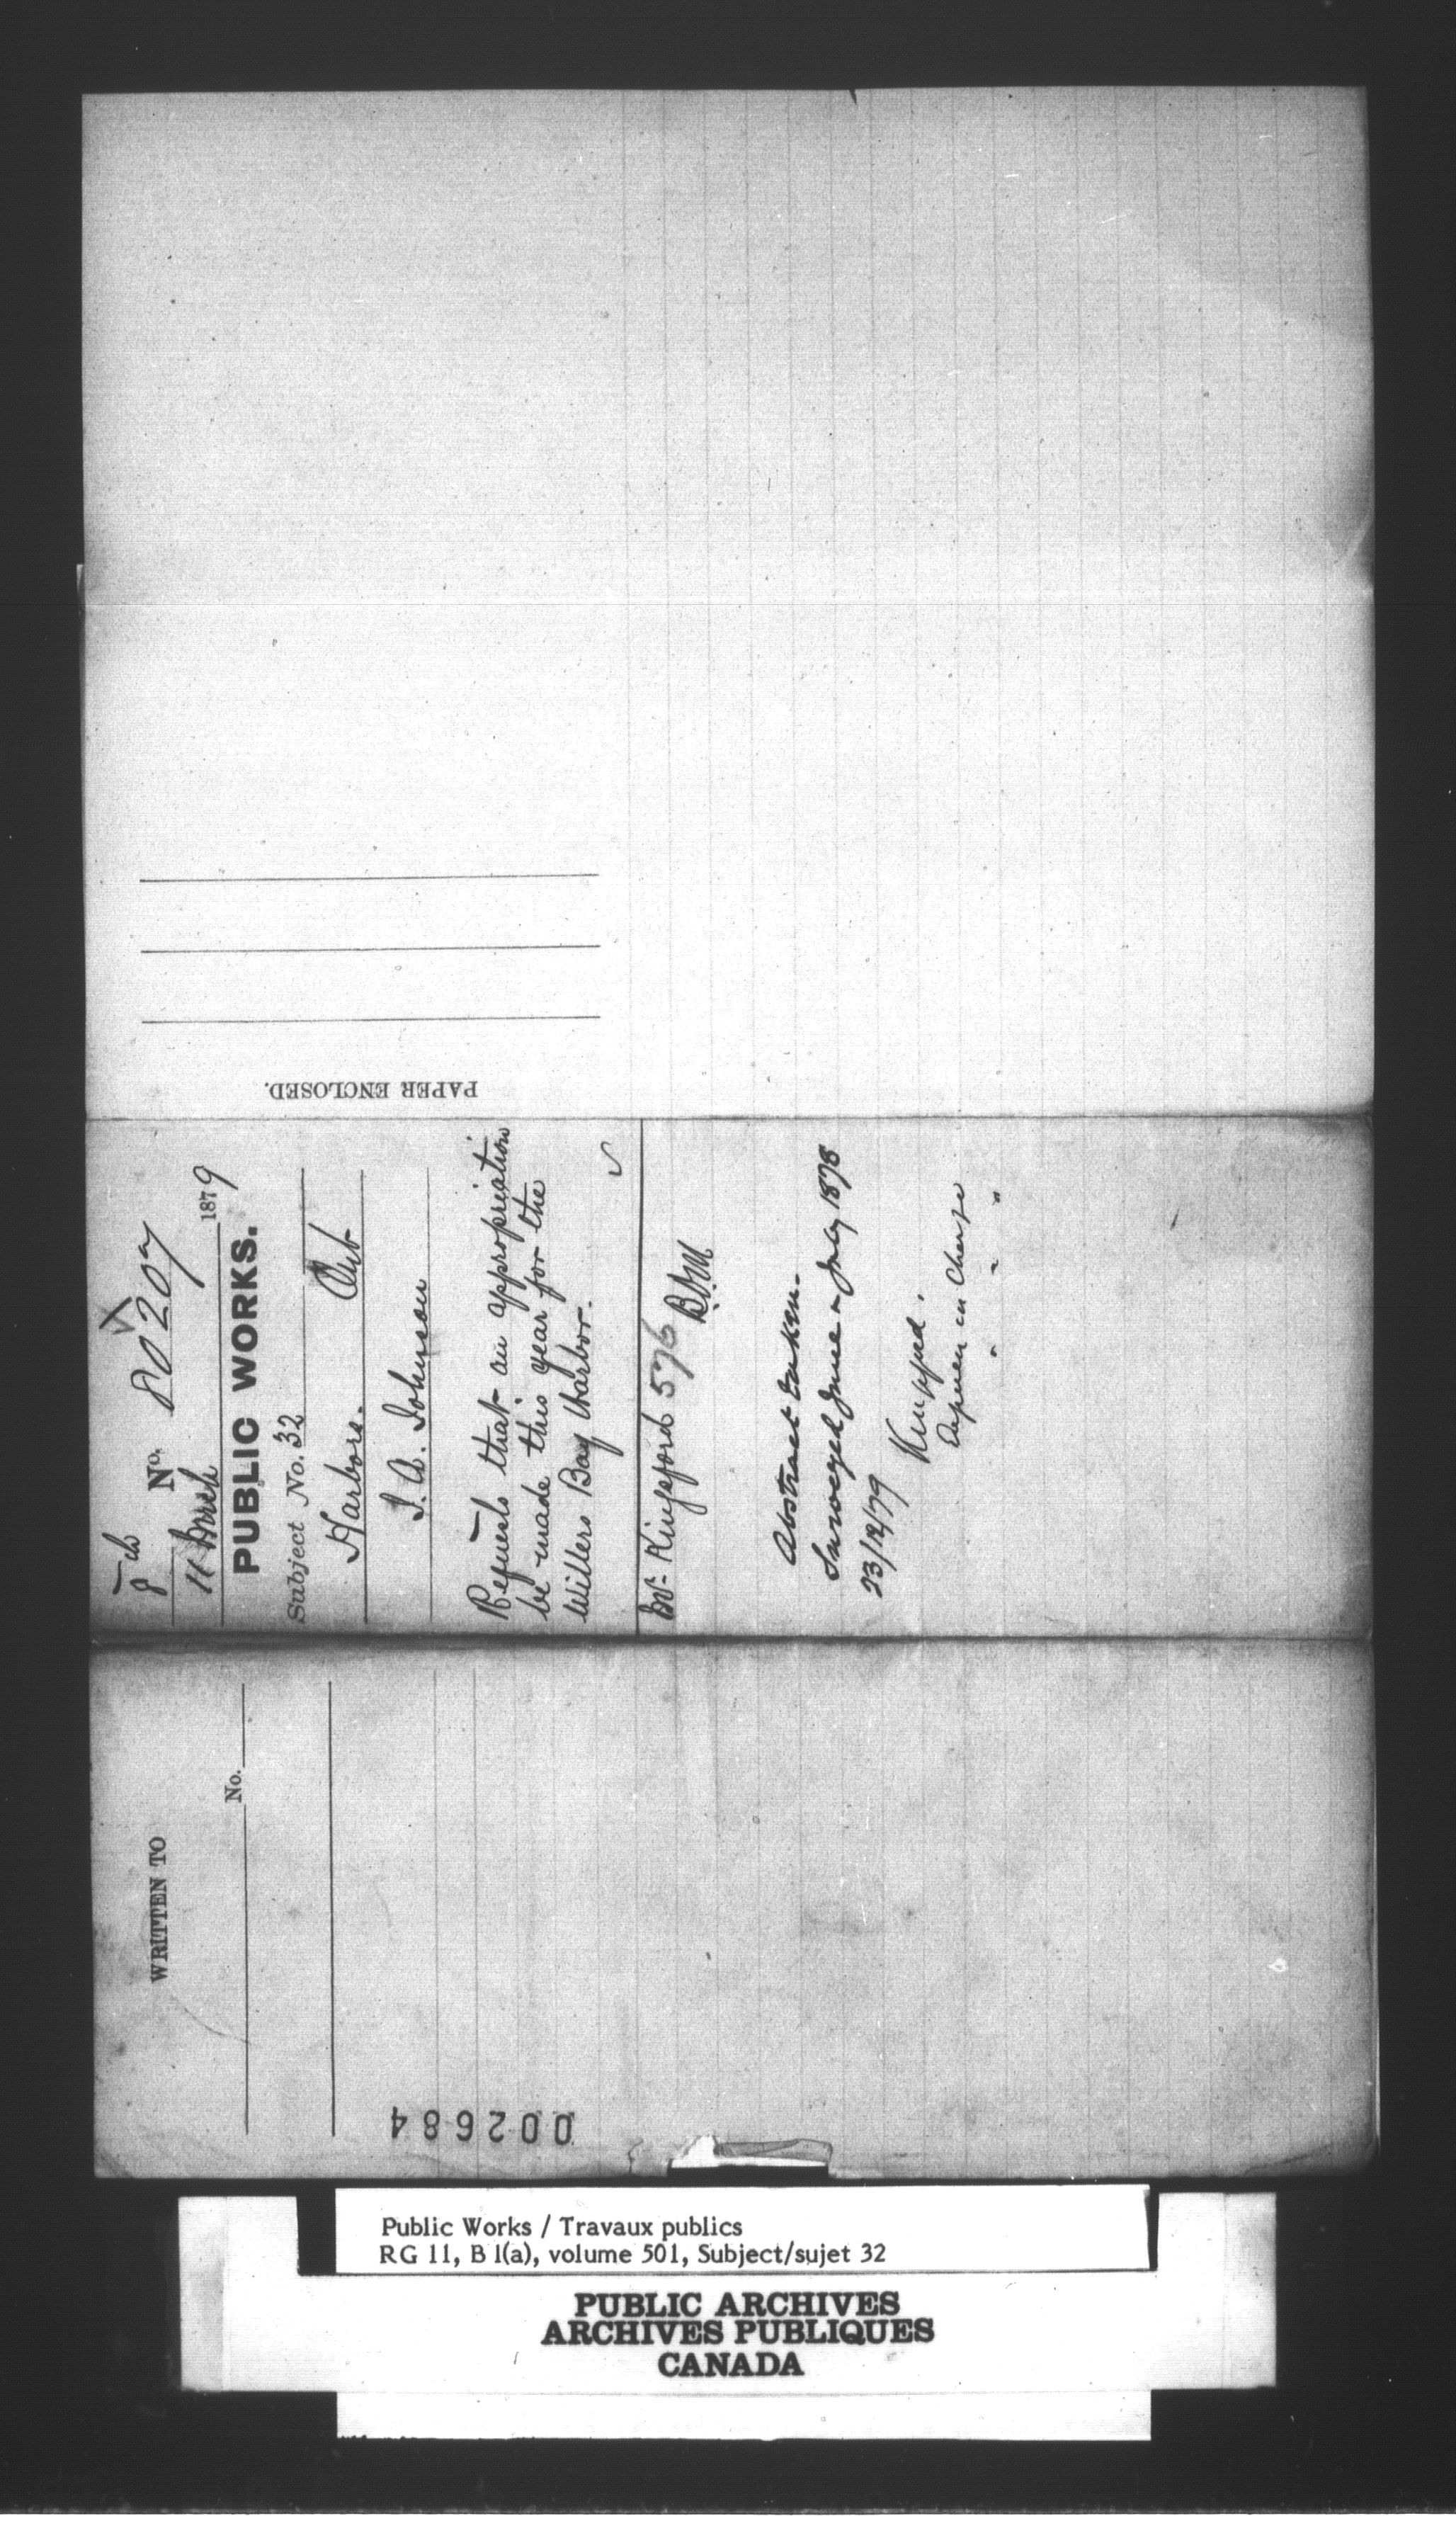 PAPER ENCLOSED.
8th No. 80207
11 March 1879
PUBLIC WORKS.
Subject No. 32
Harbors. Ont
J. A. Johnson
Requests that an appropriation
be made this year for the
Willers Bay Harbor.
Mr Kingsford 576
Abstract taken.
Surveyed June & July 1878
23/12/79
Kingsford.
Engineer in Charge
" " "
WRITTEN TO
No.
002684
Public Works / Travaux publics
RG 11, B 1(a), volume 501, Subject/sujet 32
PUBLIC ARCHIVES
ARCHIVES PUBLIQUES
CANADA